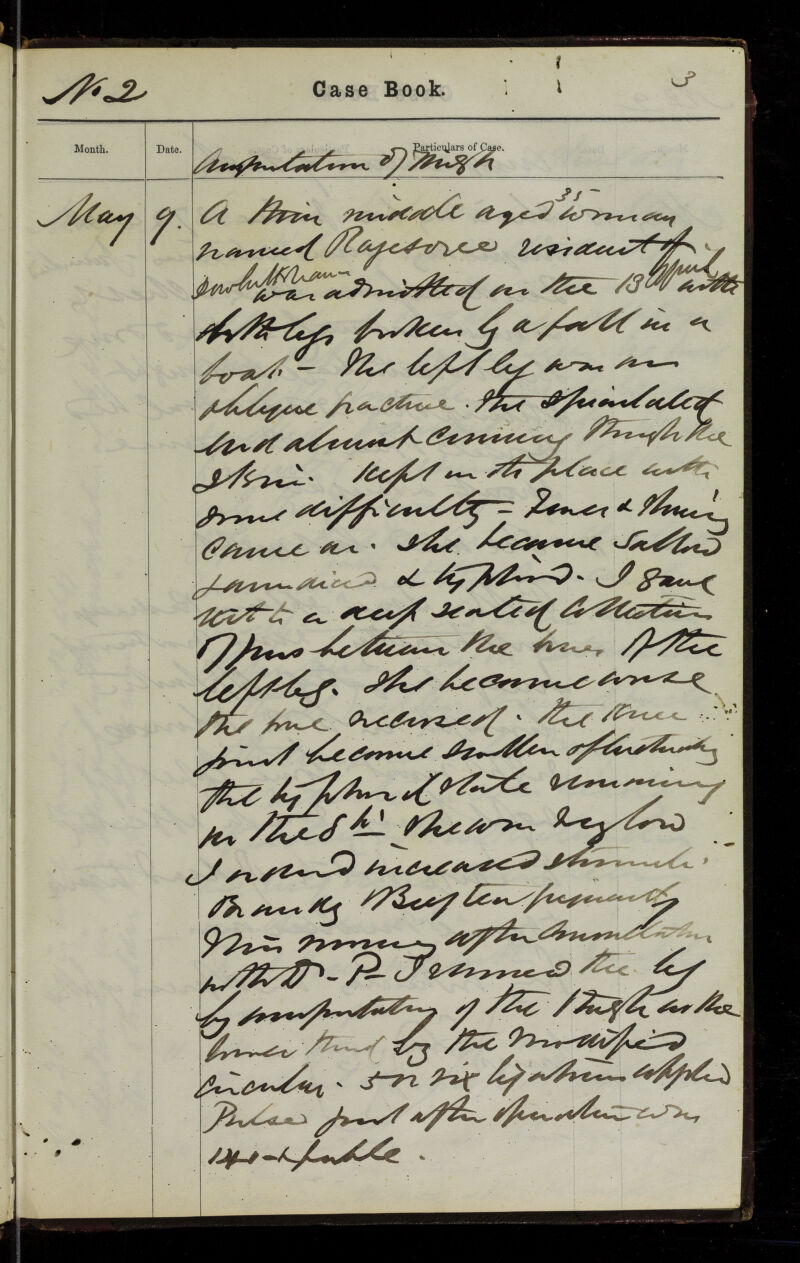 No 2 Case Book. 3
Month. Date. Particulars of Case.
Amputation of Thigh
May 9. A thin middle aged 35 woman
named Rajesoree resident of
was admitted on the 13 April with
both legs broken by a fall in a
boat – The left leg was an
oblique fracture. The spiculated
end almost coming through the
skin. Kept in its place with
some difficulty –
came on. She became sallow
jaundiced & typhoid. I gave
a deep seated collection
of pus between the bones of the
left leg. She became worse
the bone necrosed. The knee
joint became swollen & fluctuating
the typhoid state remaining
on the 8th She was very low
I ordered increased stimuli.
Brandy & Beef tea frequently
This morning after consultation
with Dr – P – I removed the leg
by amputating of the thigh in the
lower third by the modified
circular. 5 or six ligatures applied
Pulse just after operation was
140 & feeble.